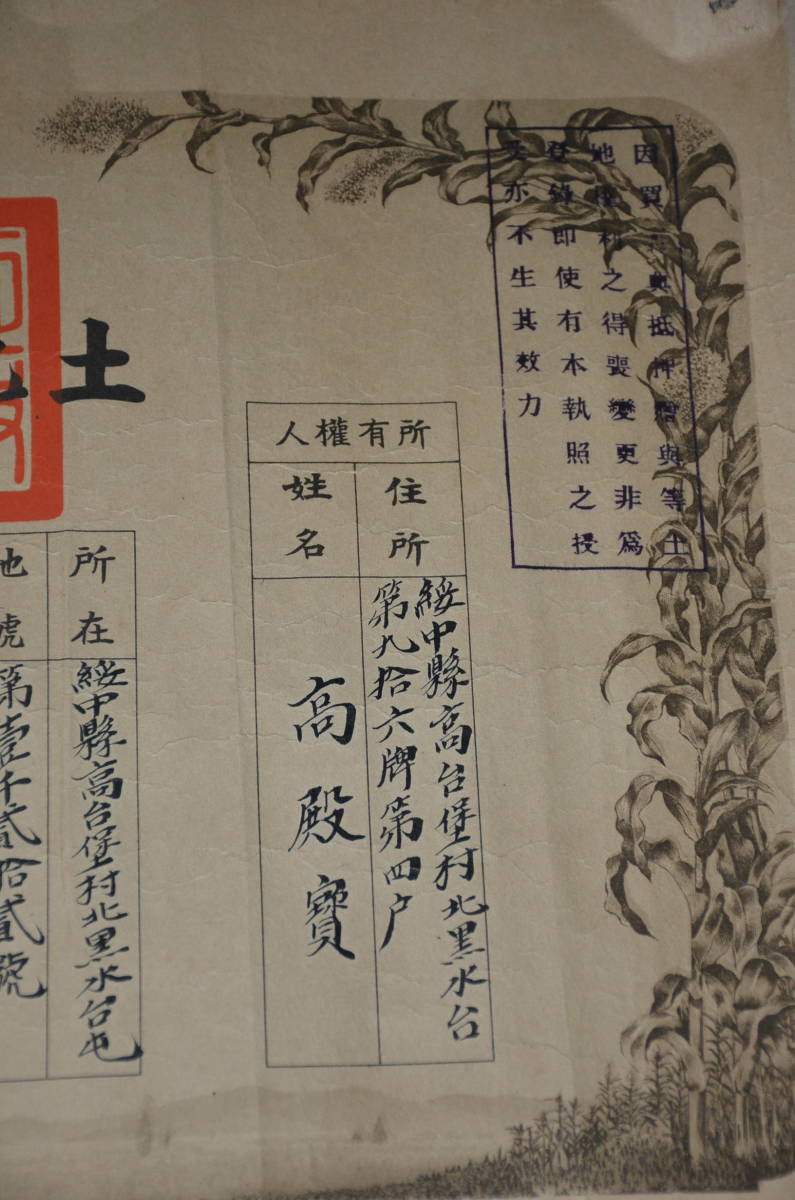 因買賣典抵押贈與等土
地權利之得喪變更非爲
登錄即使有本執照之授
受亦不生其效力
所有權人
住所
綏中縣高台堡村北黑水台
第九拾六牌第四户
姓名
高殿寶
土
所在
綏中縣高台堡村北黑水台屯
地號
第壹千貳拾貳號